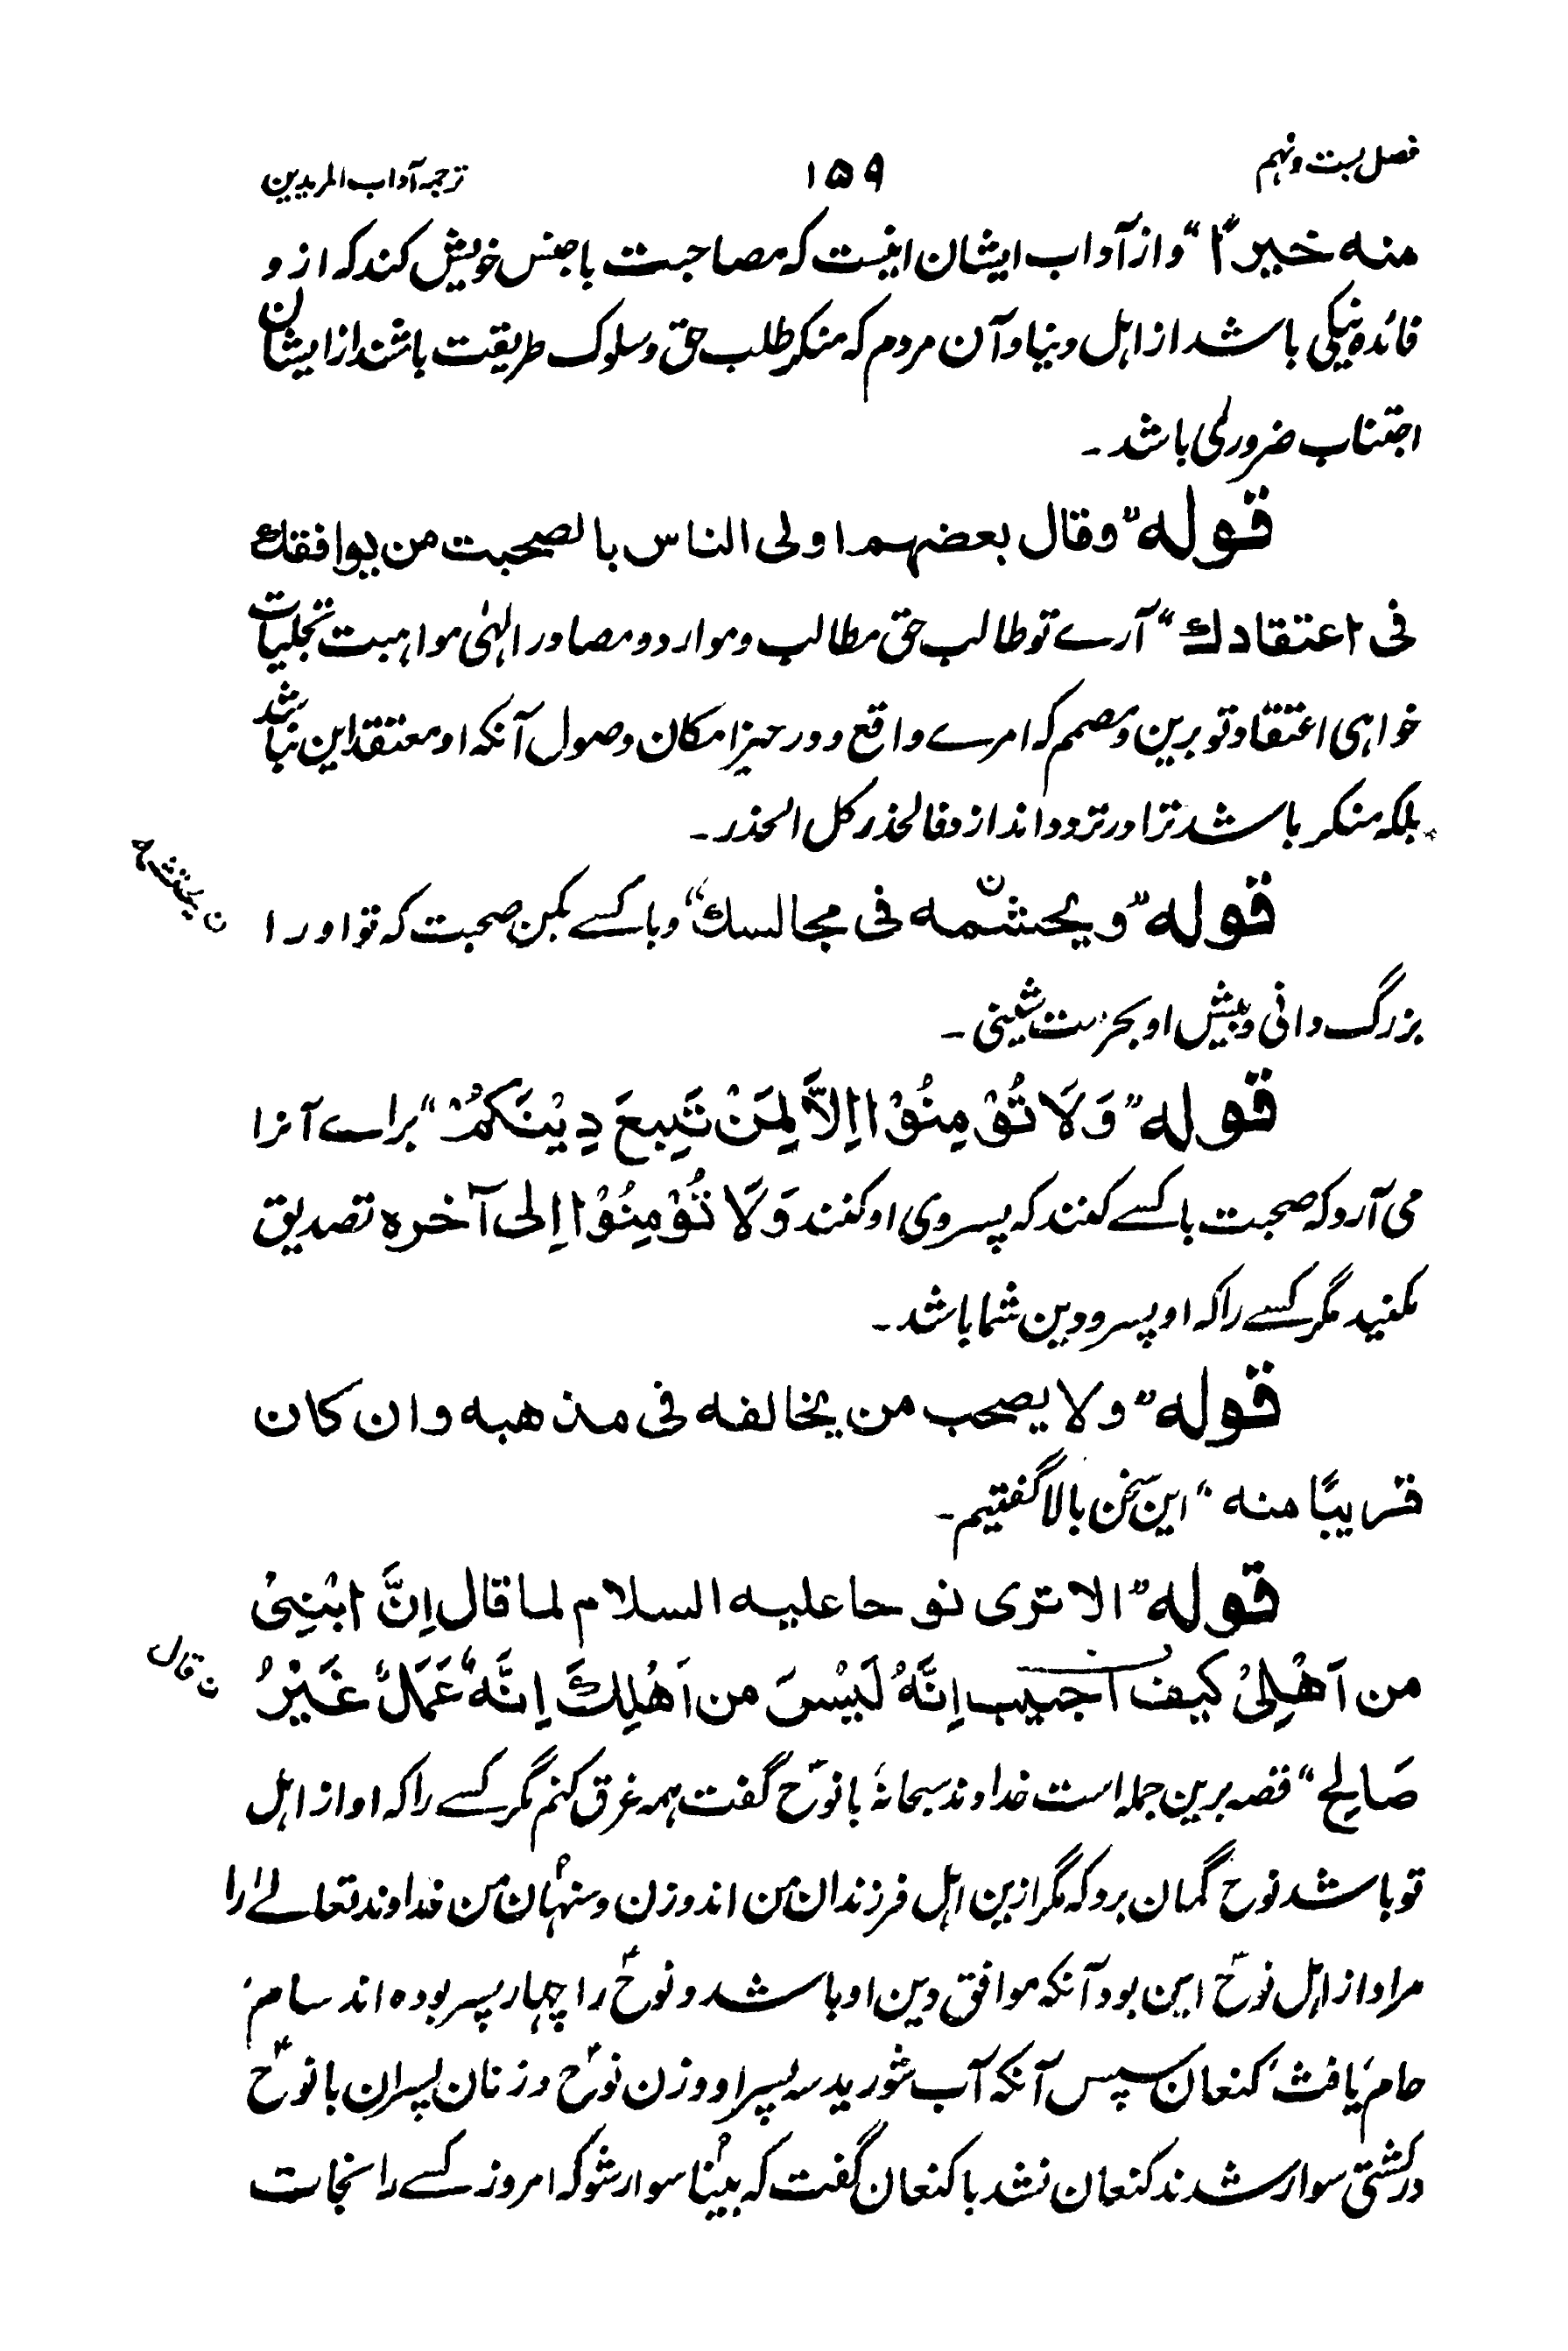 فصل بست و نہم ۱۵۹ ترجمہ آداب المریدین
منه خیرًا“ و از آداب ایشان اینست کہ مصاحبت با جنس خویش کند کہ ازو
فائدہ نیکی باشد از اہل دنیا و آن مردم کہ منکر طلب حق و سلوک طریقت باشند از ایشان
اجتناب ضروری باشد۔
قوله ”وقال بعضهم اولى الناس بالصحبت من يوافقك
فى اعتقادك“ آرے تو طالب حق مطالب و موارد و مصادر الٰہی مواہبت تجلیات
خواہی اعتقاد تو برین و مصمم کہ امرے واقع و در حیز امکان وصول آنکہ او معتقد این نباشد
بلکہ منکر باشد ترا در تردد اندازد فالحذر کل الحذر۔
قوله ”ويحشمه ن فى مجالسك“ و با کسے بکن صحبت کہ تو او را
ن يحتشم
بزرگ دانی و پیش او بحرمت شینی۔
قوله ”وَلَا تُؤْمِنُوْا اِلَّا لِمَنْ تَبِعَ دِيْنَكُمْ“ براے آنرا
می آرد کہ صحبت با کسے کنند کہ پسروی او کنند وَلَا تُؤْمِنُوْا اِلى آخره تصدیق
مکنید مگر کسے را کہ او پسرو دین شما باشد۔
قوله ”ولا يصحب من يخالفه فى مذهبه وان كان
قريبًا منه“ این سخن بالا گفتیم۔
قوله ”الا ترى نوحا عليه السلام لما قال اِنَّ ابْنِىْ
من اَهْلِىْ كيف اجيب اِنَّهٗ لَيْسَ من اَهْلِكَ اِنَّهٗ عَمَلٌ غَيْرُ
ن قال
صَالِحٍ“ قصہ برین جملہ است خداوند سبحانہٗ با نوحؑ گفت ہمہ غرق کنم مگر کسے را کہ او از اہل
تو باشد نوح گمان برد کہ مگر ازین اہل فرزندان من اند و زن و سنہان من خداوند تعالےٰ را
مراد از اہل نوحؑ این بود آنکہ موافق دین او باشد و نوحؑ را چہار پسر بودہ اند سام٬
حام٬ یافث٬ کنعان سپس آنکہ آب شورید سہ پسر او و زن نوحؑ و زنان پسران با نوحؑ
در کشتی سوار شدند کنعان نشد با کنعان گفت کہ بیا سوار شو کہ امروز کسے را نجات